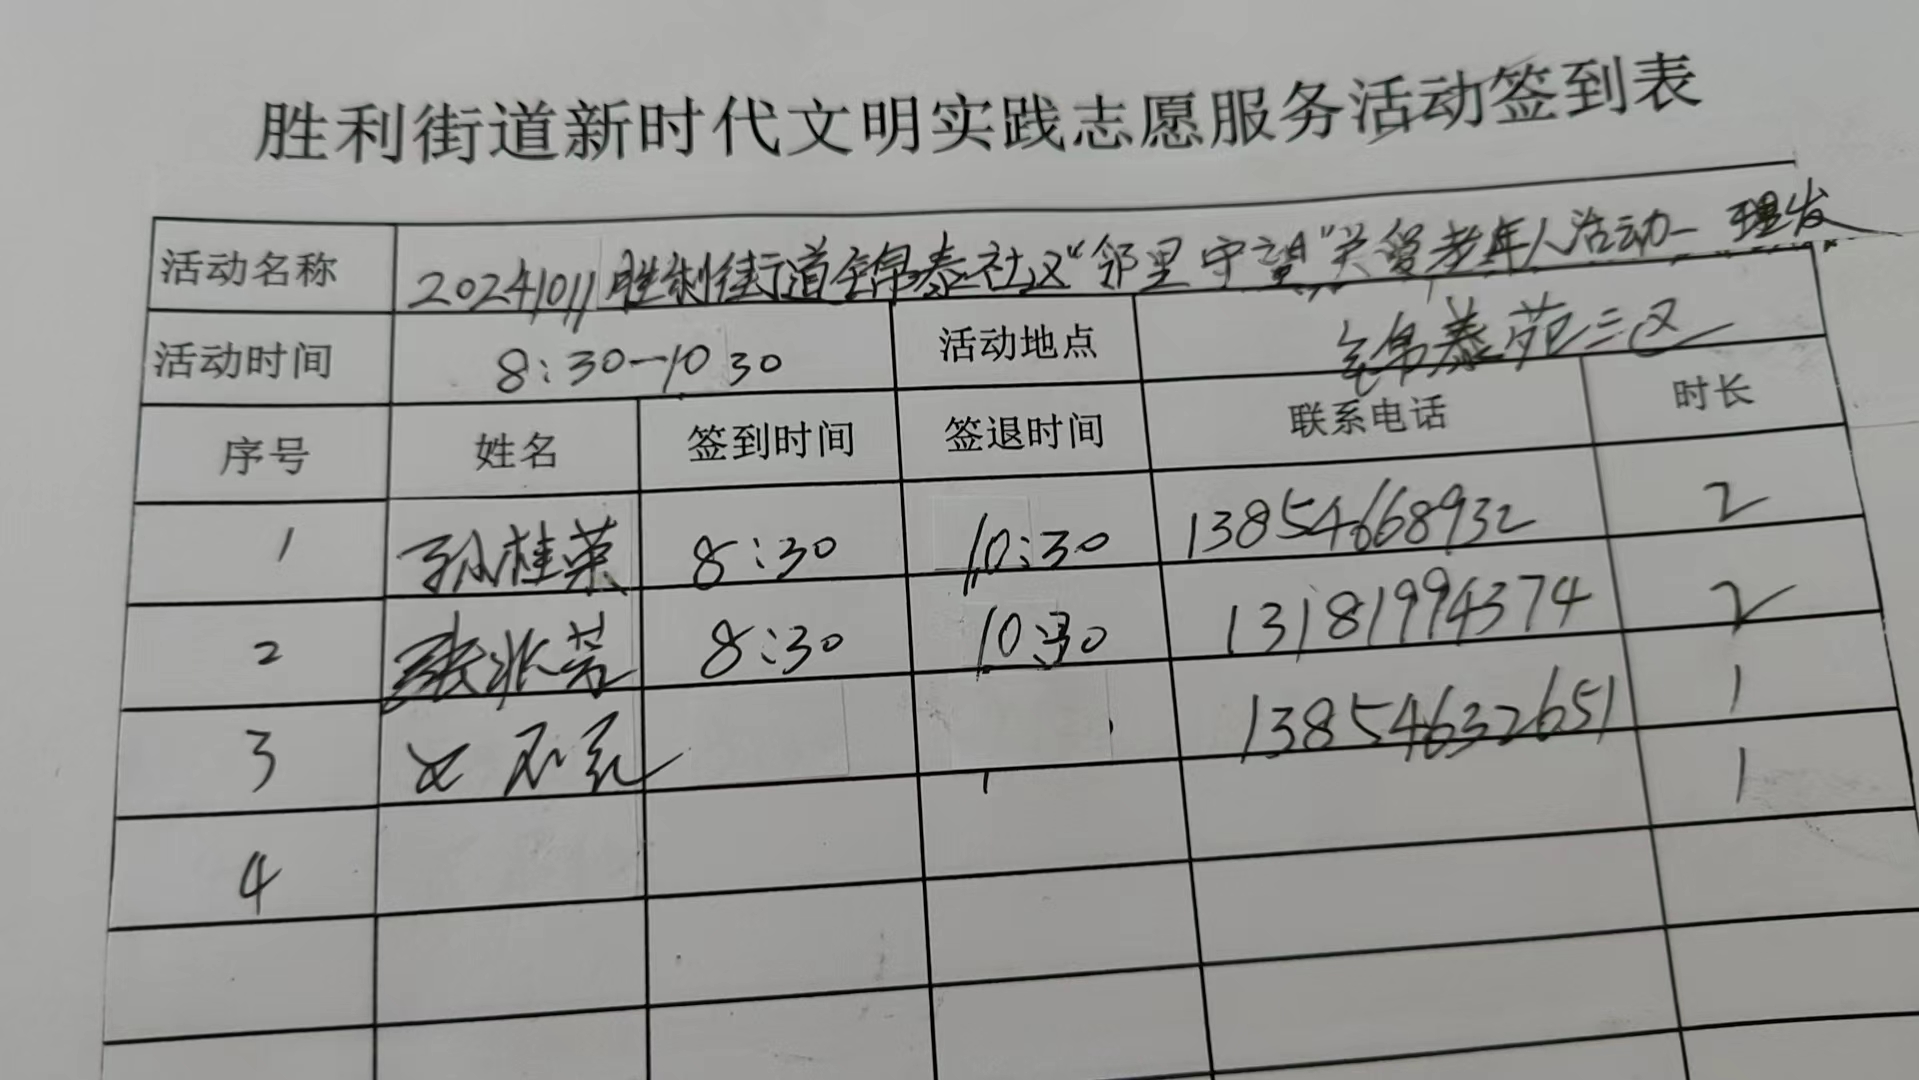 胜利街道新时代文明实践志愿服务活动签到表
活动名称 20241011胜利街道锦泰社区“邻里守望”关爱老年人活动—理发
活动时间 8:30—10 30 活动地点 锦泰苑三区
序号 姓名 签到时间 签退时间 联系电话 时长
1 孙桂荣 8:30 10:30 13854668932 2
2 张 芳 8:30 10:30 13181994374 2
3 13854632651 1
4 1